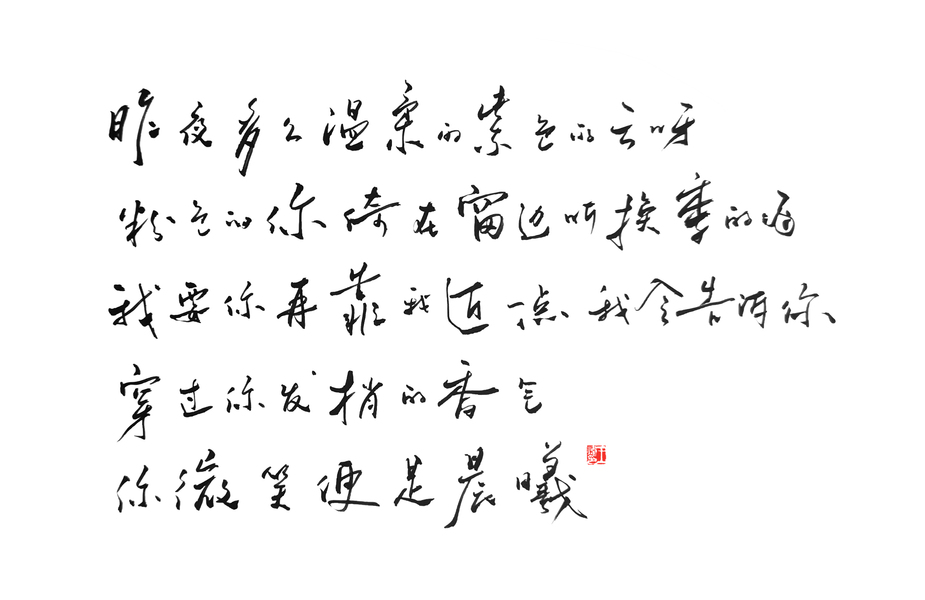 昨夜多么温柔的紫色的云呀
粉色的你倚在窗边听换季的
我要你再靠我近一点我会告诉你
穿过你发梢的香气
你微笑便是晨曦